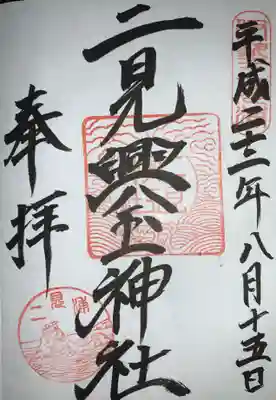 平成二十二年八月十五日
二見興玉神社
奉拝